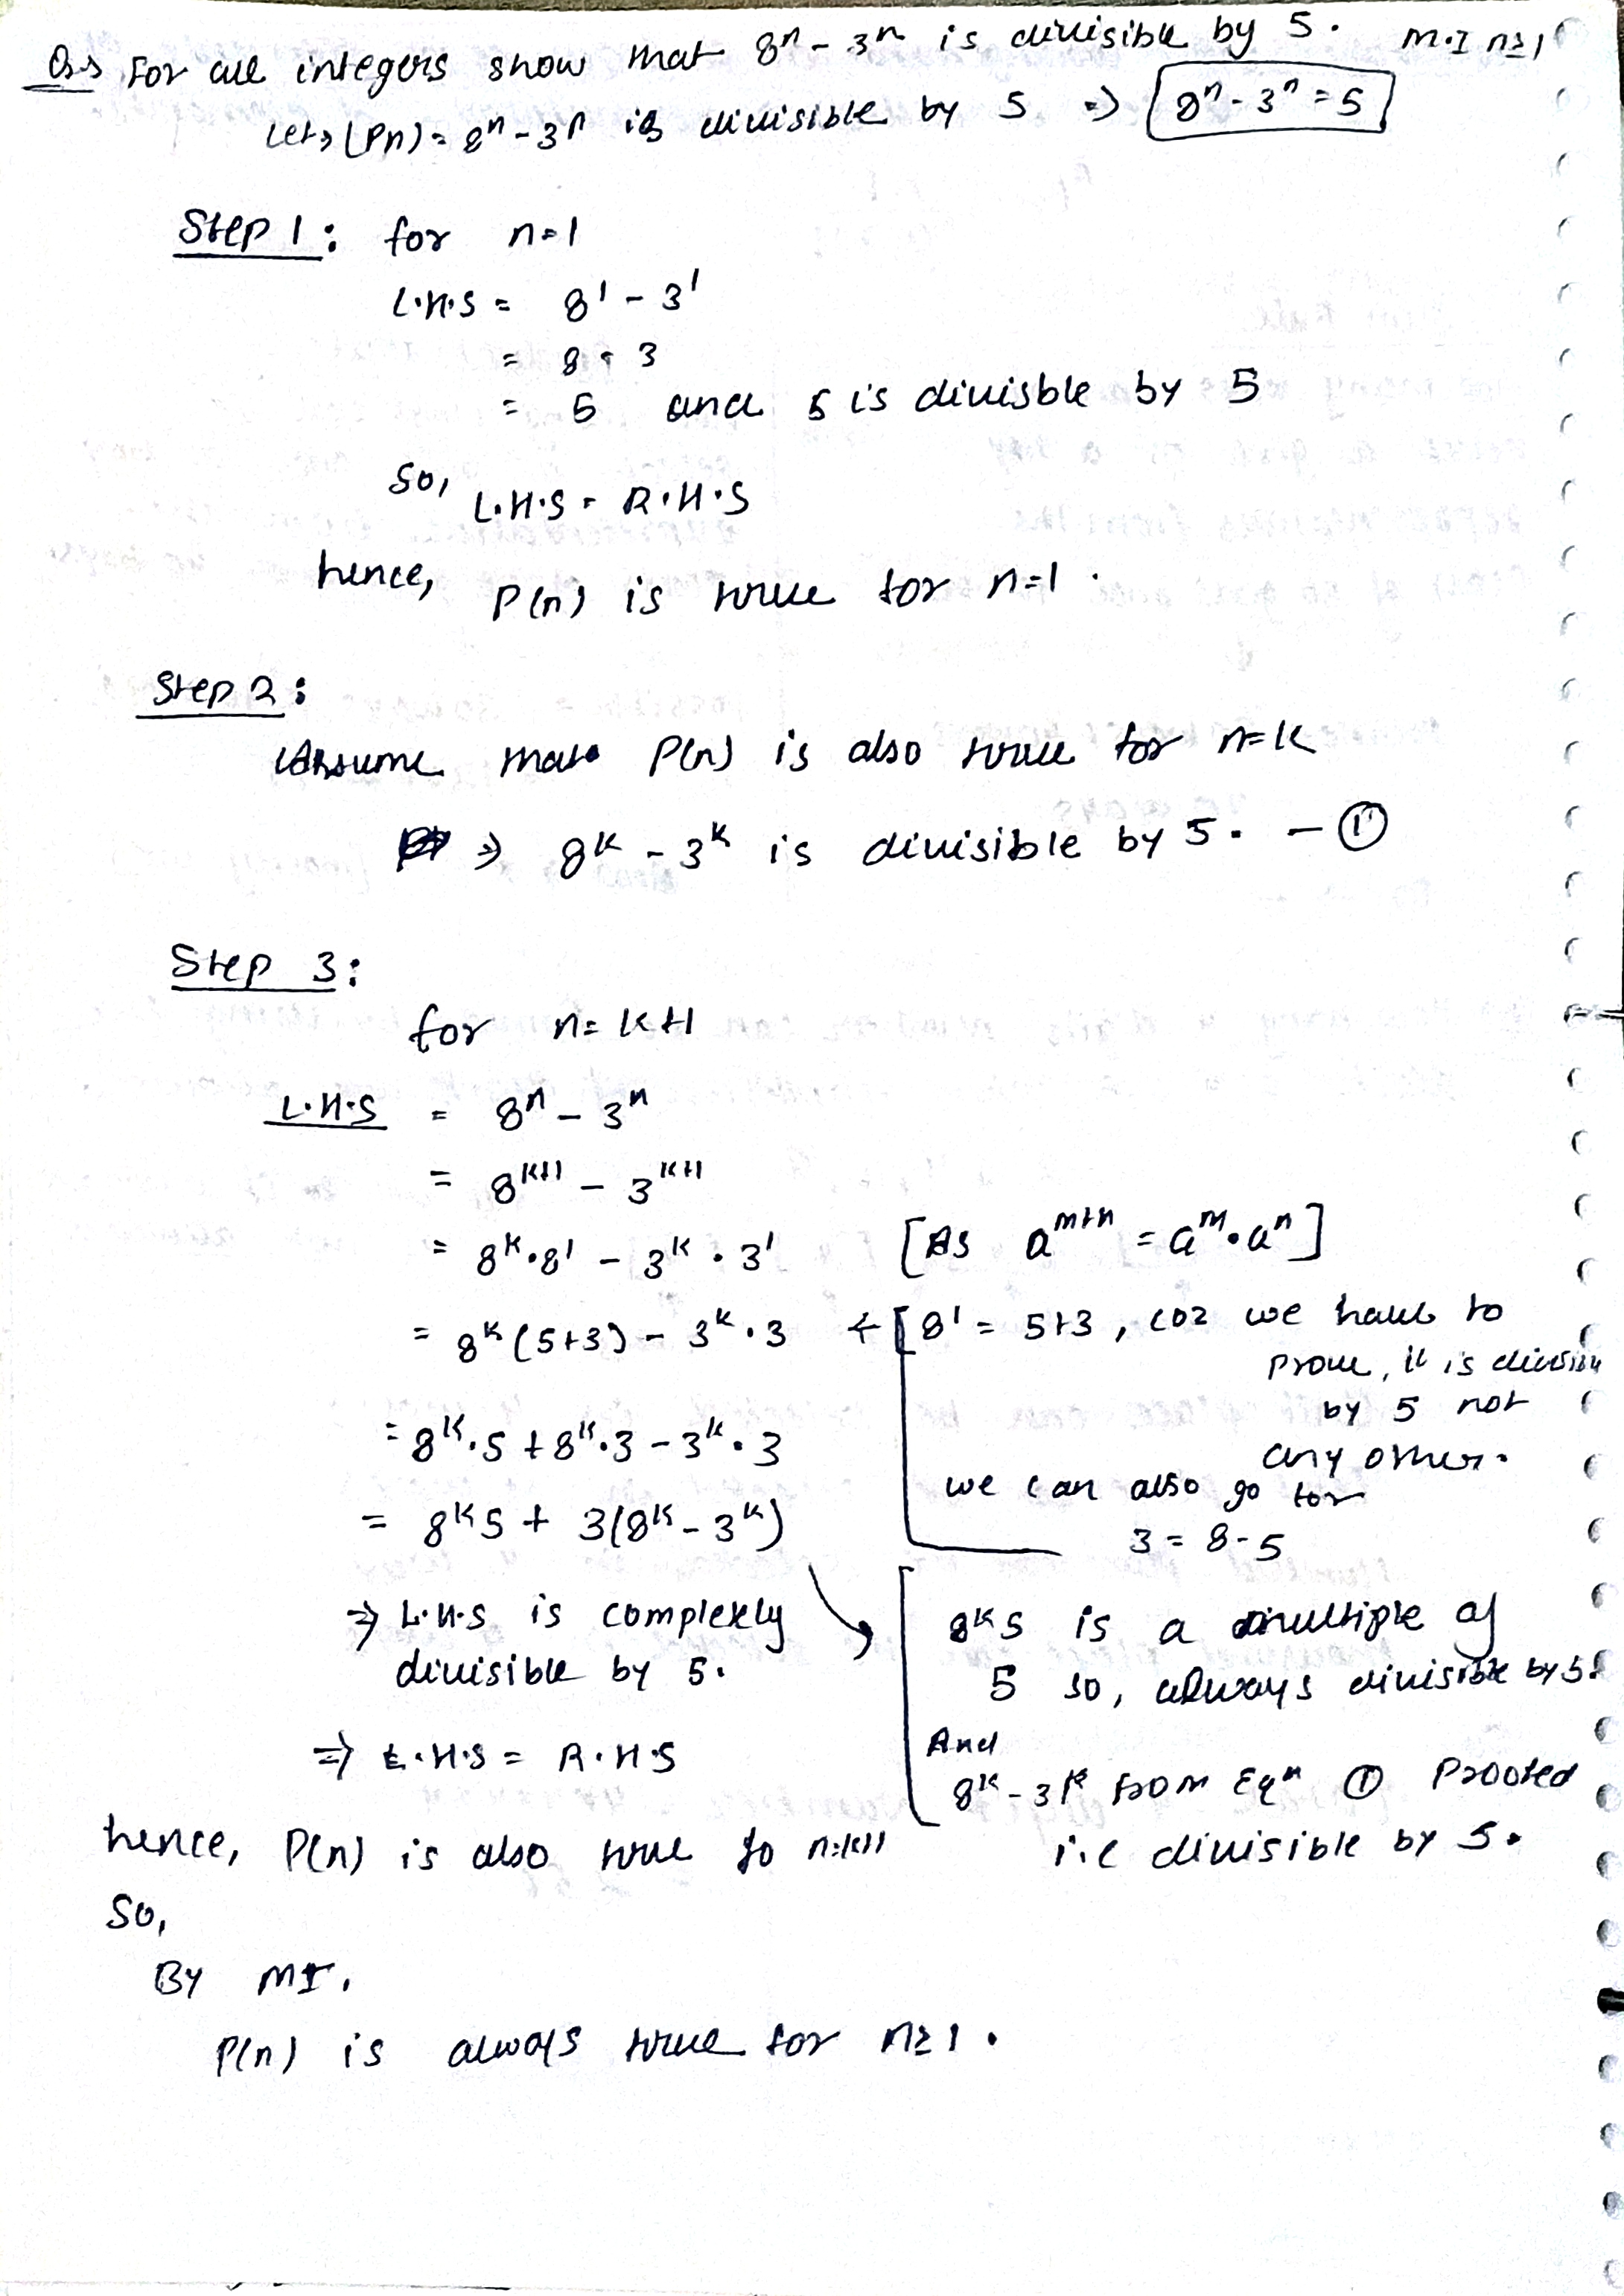 Qs, For all integers show that 8ⁿ - 3ⁿ is divisible by 5. M.I n≥1
Let, (Pn) = 8ⁿ - 3ⁿ is divisible by 5 => 8ⁿ - 3ⁿ = 5
Step 1: for n=1
L.H.S = 8¹ - 3¹
= 8 - 3
= 5 and 5 is divisble by 5
So, L.H.S = R.H.S
hence, P(n) is true for n=1.
Step 2:
Assume that P(n) is also true for n=k
=> 8ᵏ - 3ᵏ is divisible by 5. - ①
Step 3:
for n = k+1
L.H.S = 8ⁿ - 3ⁿ
= 8ᵏ⁺¹ - 3ᵏ⁺¹
= 8ᵏ.8¹ - 3ᵏ.3¹ [As aᵐ⁺ⁿ = aᵐ.aⁿ]
= 8ᵏ(5+3) - 3ᵏ.3 ← [8¹ = 5+3, coz we have to
prove, it is divisible
by 5 not
any other.
we can also go for
3 = 8-5
= 8ᵏ.5 + 8ᵏ.3 - 3ᵏ.3
= 8ᵏ5 + 3(8ᵏ - 3ᵏ)
8ᵏ5 is a multiple of
5 so, always divisible by 5.
And
8ᵏ - 3ᵏ from Eqⁿ ① Proofed
i.e divisible by 5.
=> L.H.S is completely
divisible by 5.
=> L.H.S = R.H.S
hence, P(n) is also true fo n=k+1
So,
By MI,
P(n) is always true for n≥1.